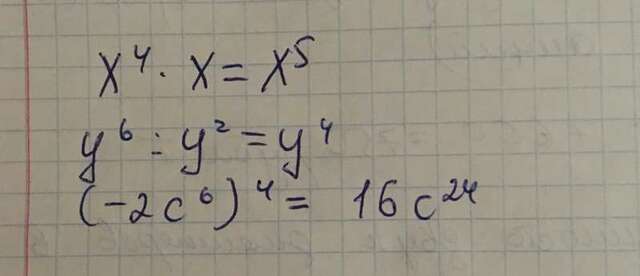 x⁴ · x = x⁵
y⁶ : y² = y⁴
(-2c⁶)⁴ = 16c²⁴